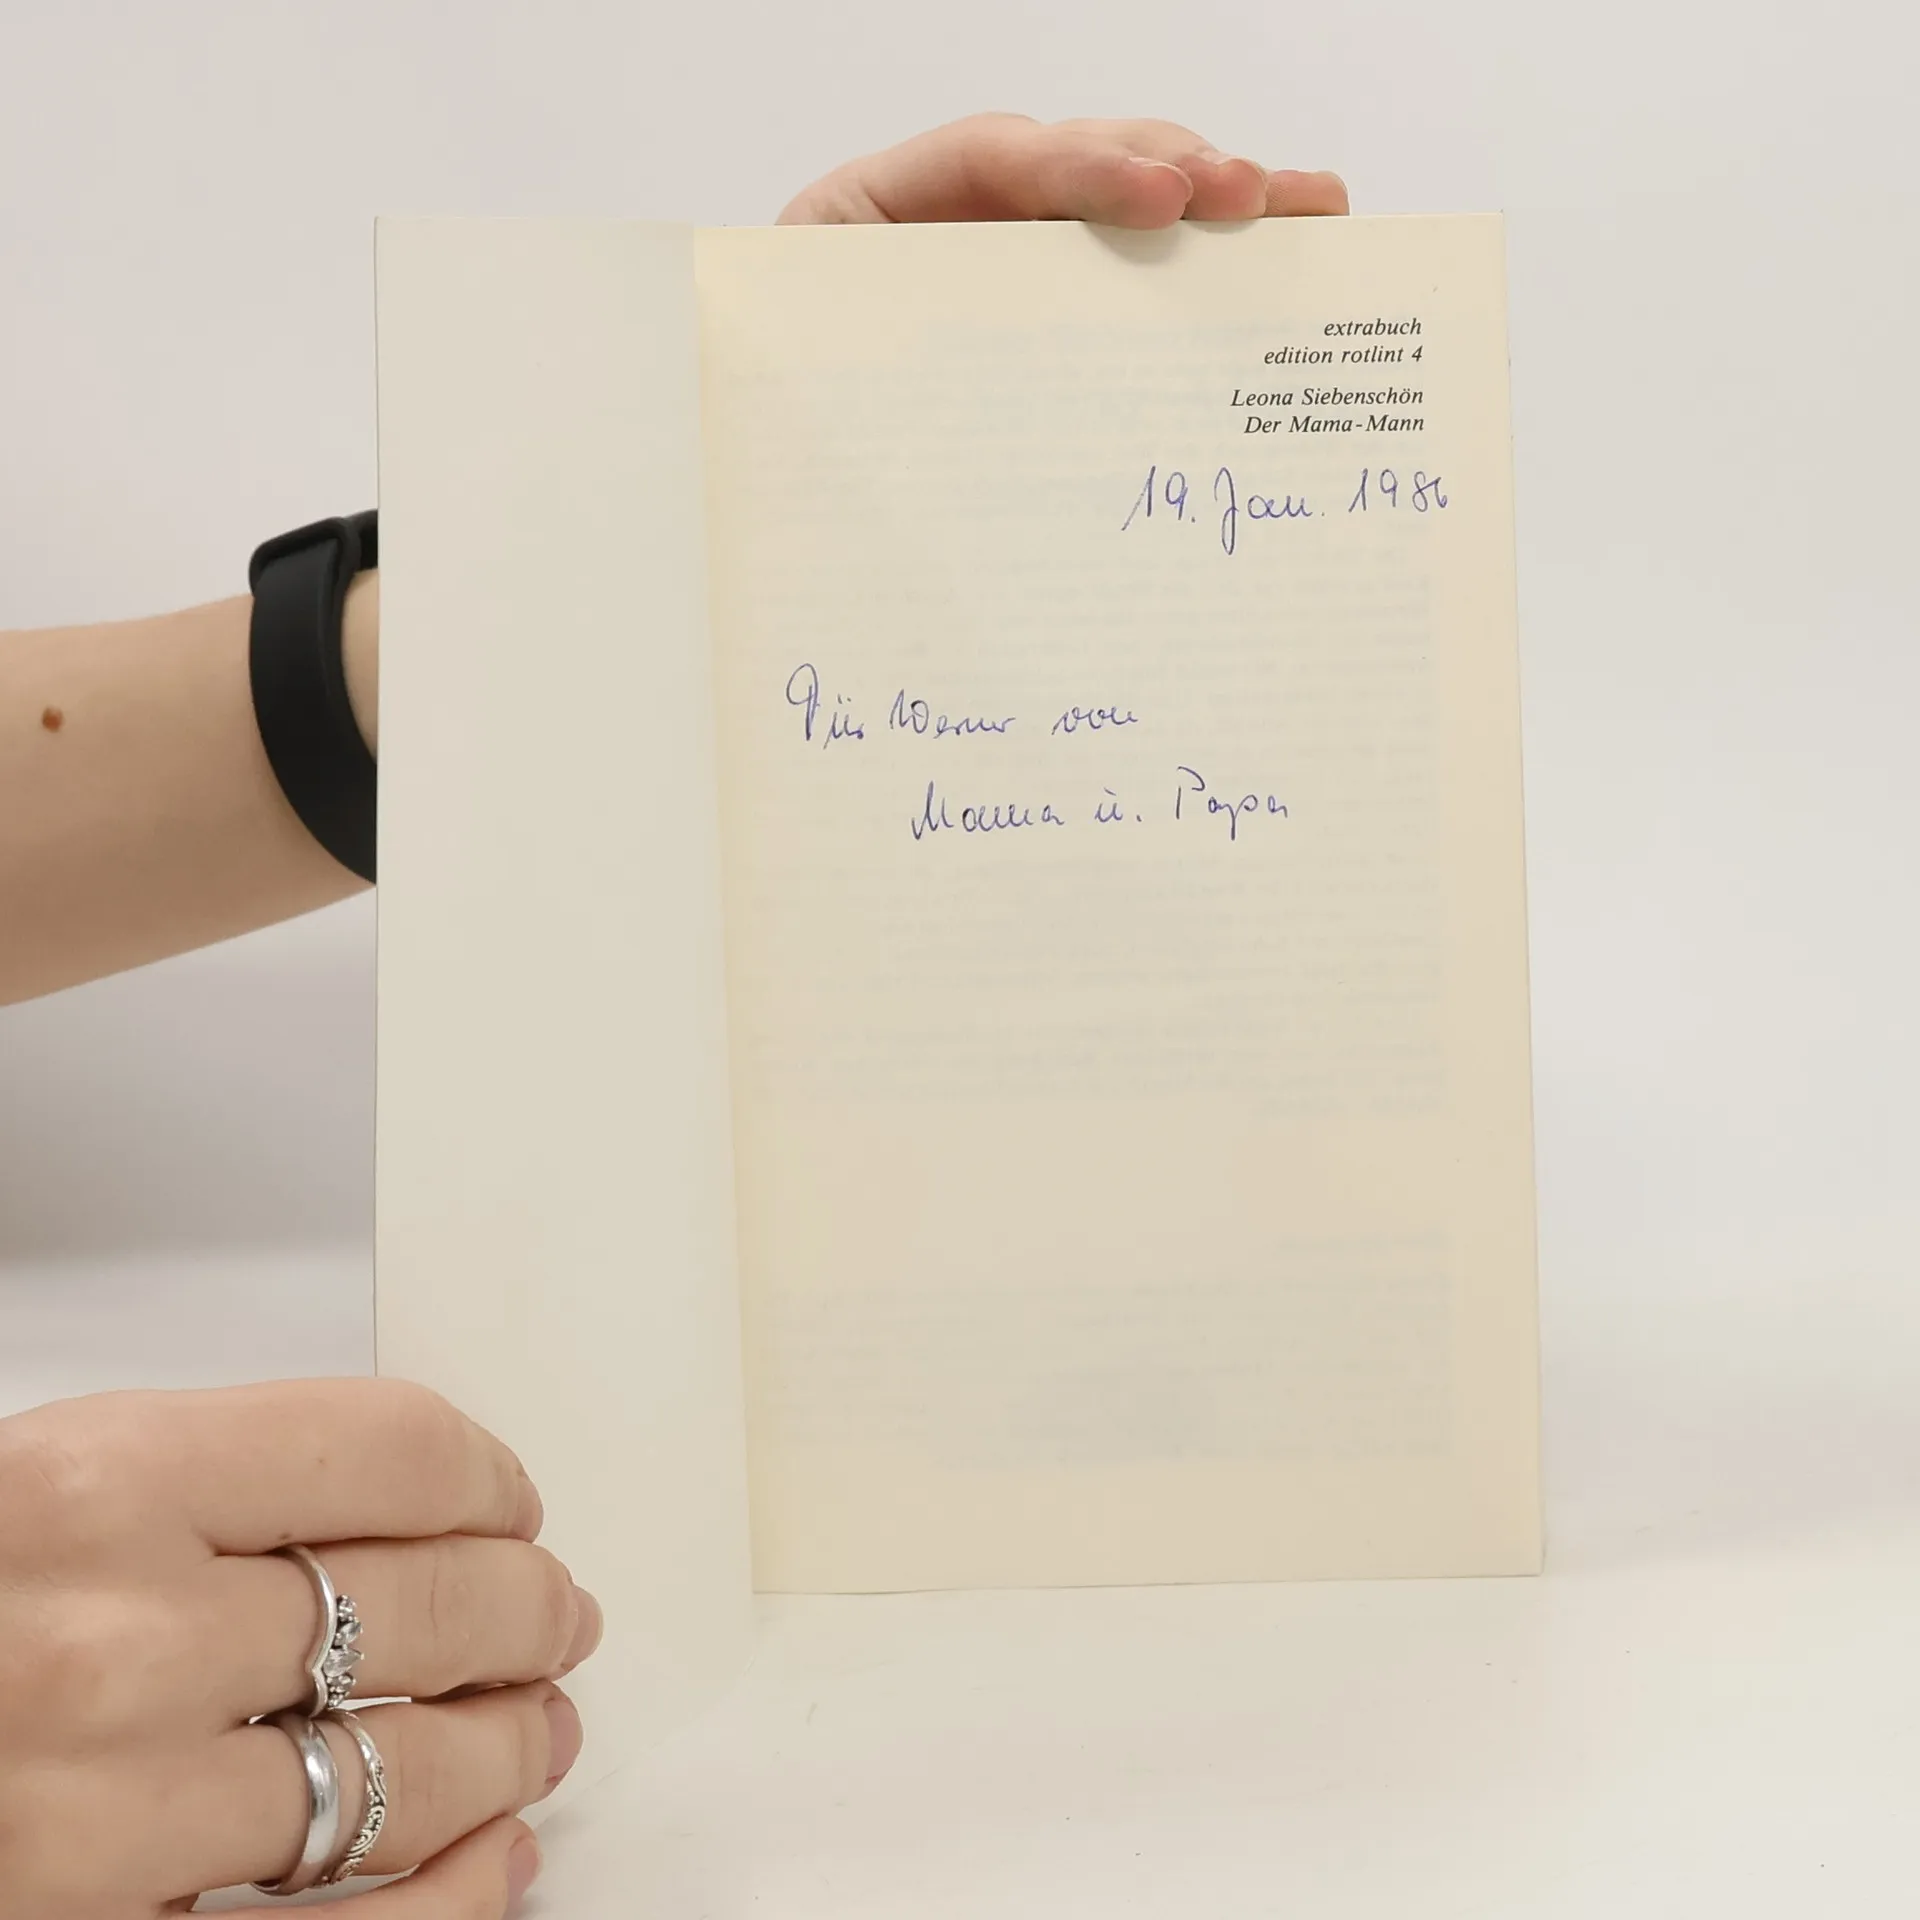 extrabuch
edition rotlint 4
Leona Siebenschön
Der Mama-Mann
19. Jan. 1986
Für Werner von
Mama u. Papa